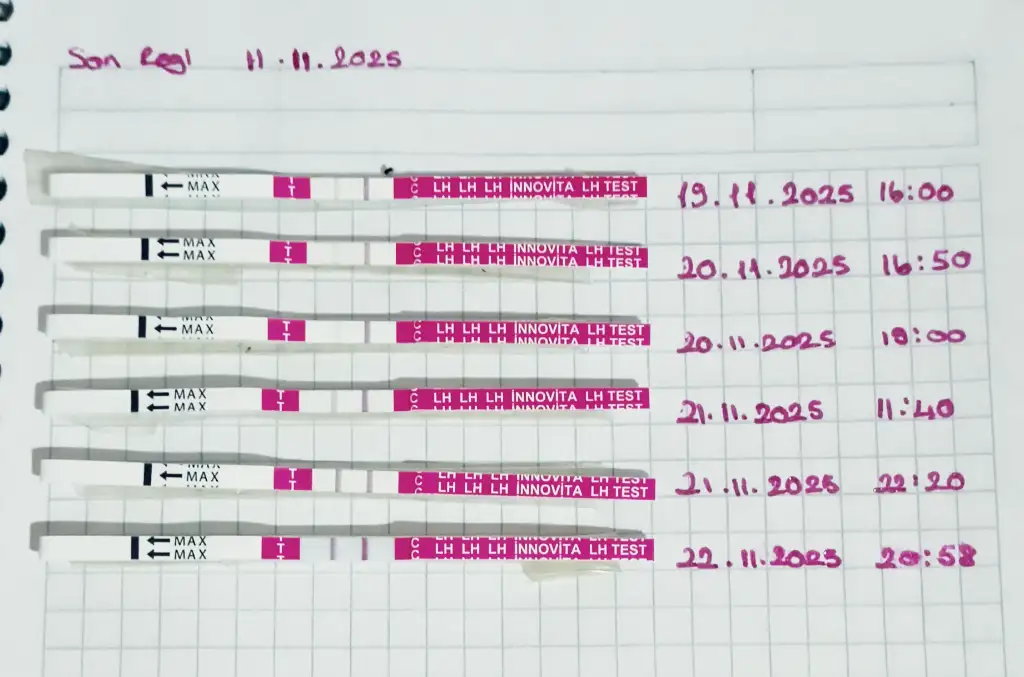 Son Regl 11.11.2025
MAX T C LH LH LH İNNOVİTA LH TEST 19.11.2025 16:00
MAX MAX T C LH LH LH İNNOVİTA LH TEST C LH LH LH İNNOVİTA LH TEST 20.11.2025 16:50
MAX T C LH LH LH İNNOVİTA LH TEST 20.11.2025 18:00
MAX MAX T C LH LH LH İNNOVİTA LH TEST 21.11.2025 11:40
MAX T C LH LH LH İNNOVİTA LH TEST 21.11.2025 22:20
MAX MAX T C LH LH LH İNNOVİTA LH TEST 22.11.2025 20:58